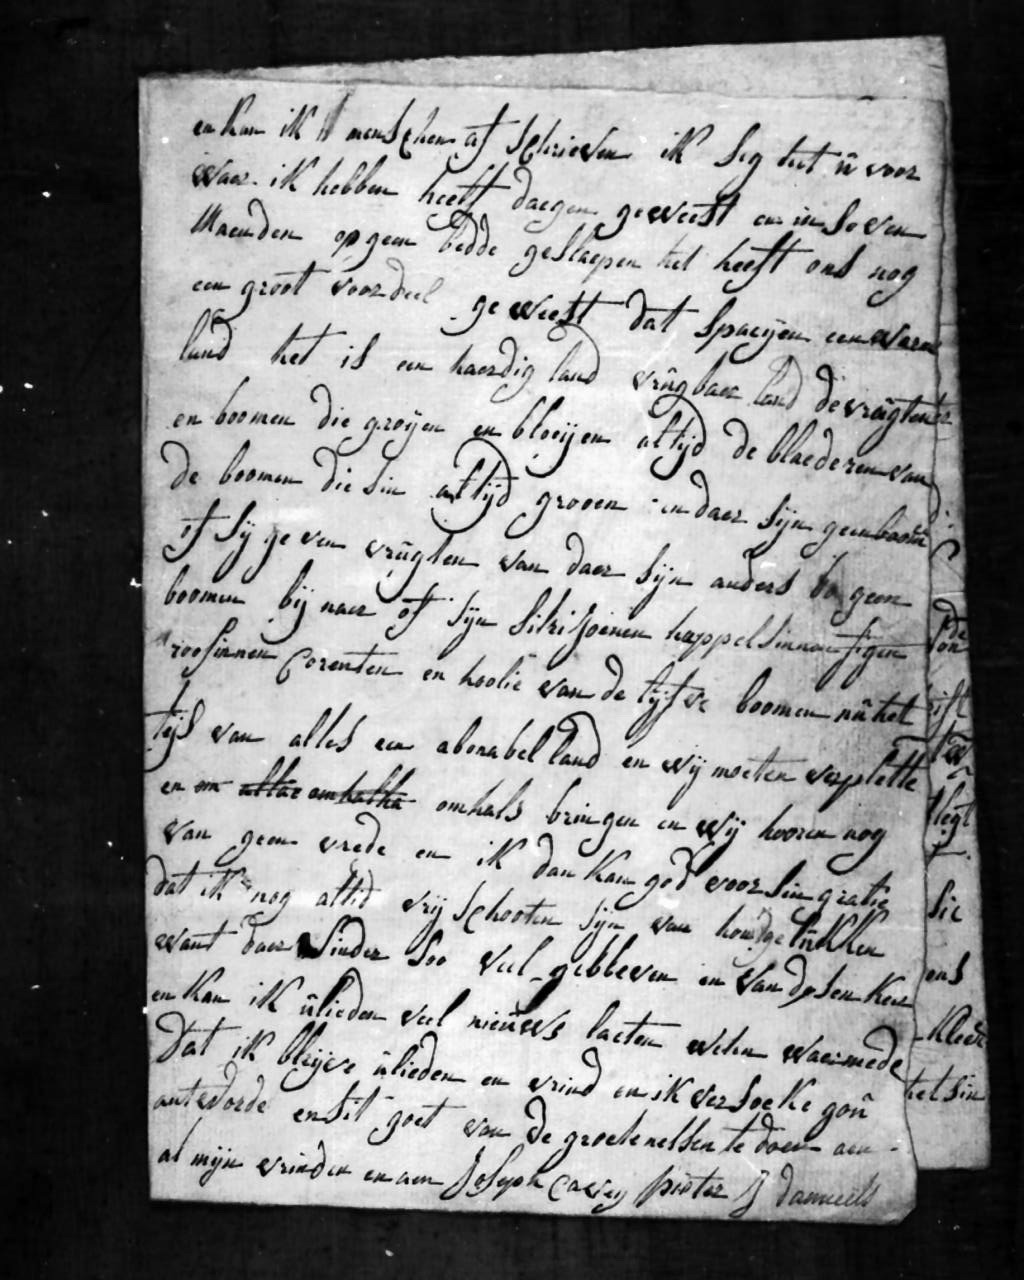 en kan ik menschen af schrieven ik seg het û voor
waer ik hebben heeft daegen geweest en in seven
Maenden op geen bedde geslaepen het heeft ons nog
een groot voordeel geweest dat spaeijen een warm
land het is een haerdig land vrûgbaer land de vrûgten
en boomen die groijen en bloeijen altijd de blaederen van
de boomen die sin altijd grooen en daer sijn geen boom
of sij geven vrûgten van daer sijn anders geen
boomen bij naer of sijn sitrisoenen happelsinnen figen
roosinnen Corenten en hoolie van de lijf ve boomen nû het
tijs van alles een abonabel land en wij moeten verplette
en om allae omhalha omhals bringen en wij hooren nog
van geen vrede en ik dan kan god voor sin gratie
dat ik nog altid vrij schooten sijn van hongelûkken
want daer sinder soo veel gebbleven en van desen keer
en kan ik ûlieden veel nieûws laeten weten waermede
Dat ik blijve ûlieden en vrind en ik versoeke goû
antworde en sit goet van de groetenessen te doen aen
al mijn vrinden en aen Joseph Caveij pieter J danneels
de
son
ons
kleer
het sin